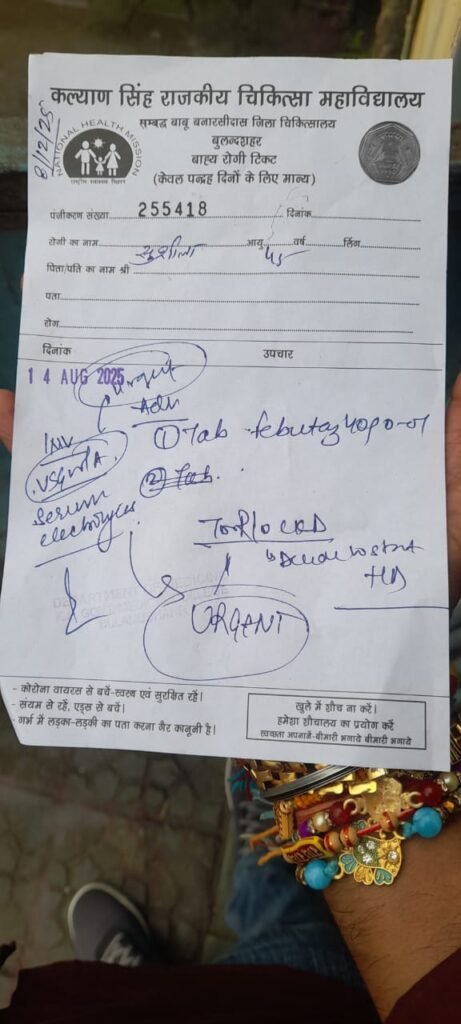 8/12/25
NATIONAL HEALTH MISSION
राष्ट्रीय स्वास्थ्य मिशन
कल्याण सिंह राजकीय चिकित्सा महाविद्यालय
सम्बद्ध बाबू बनारसीदास जिला चिकित्सालय
बुलन्दशहर
बाह्य रोगी टिकट
(केवल पन्द्रह दिनों के लिए मान्य)
पंजीकरण संख्या 255418 दिनांक
रोगी का नाम सुशीला आयु 45 वर्ष लिंग
पिता/पति का नाम श्री
पता
रोग
दिनांक उपचार
14 AUG 2025 Urgent
Adv
Inv ① Tab
USG W/A ② Tab
Serum
electrolytes
HD
URGANT
- कोरोना वायरस से बचें-स्वस्थ एवं सुरक्षित रहें।
- संयम से रहें, एड्स से बचें।
- गर्भ में लड़का-लड़की का पता करना गैर कानूनी है।
खुले में शौच ना करें।
हमेशा शौचालय का प्रयोग करें
स्वच्छता अपनायें-बीमारी भगाये बीमारी भगाये